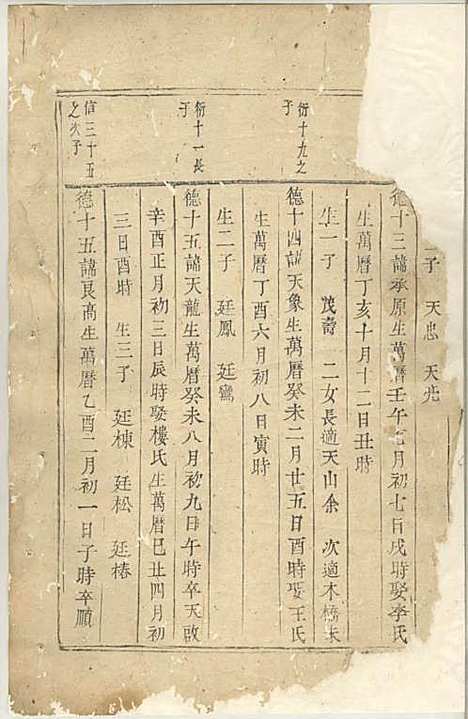 子 天忠 天兆
德十三諱承原生萬曆壬午七月初七日戌時娶李氏
生萬曆丁亥十月十二日丑時
生一子 茂壽 二女長適天山余 次適木橋朱
衍十九之子
德十四諱天象生萬曆癸未二月廿五日酉時娶王氏
生萬曆丁酉六月初八日寅時
生二子 廷鳳 廷鸞
衍十一長子
德十五諱天龍生萬曆癸未八月初九日午時卒天啟
辛酉正月初三日辰時娶樓氏生萬曆己丑四月初
三日酉時 生三子 廷棟 廷松 廷椿
信三十五之次子
德十五諱良高生萬曆乙酉二月初一日子時卒順